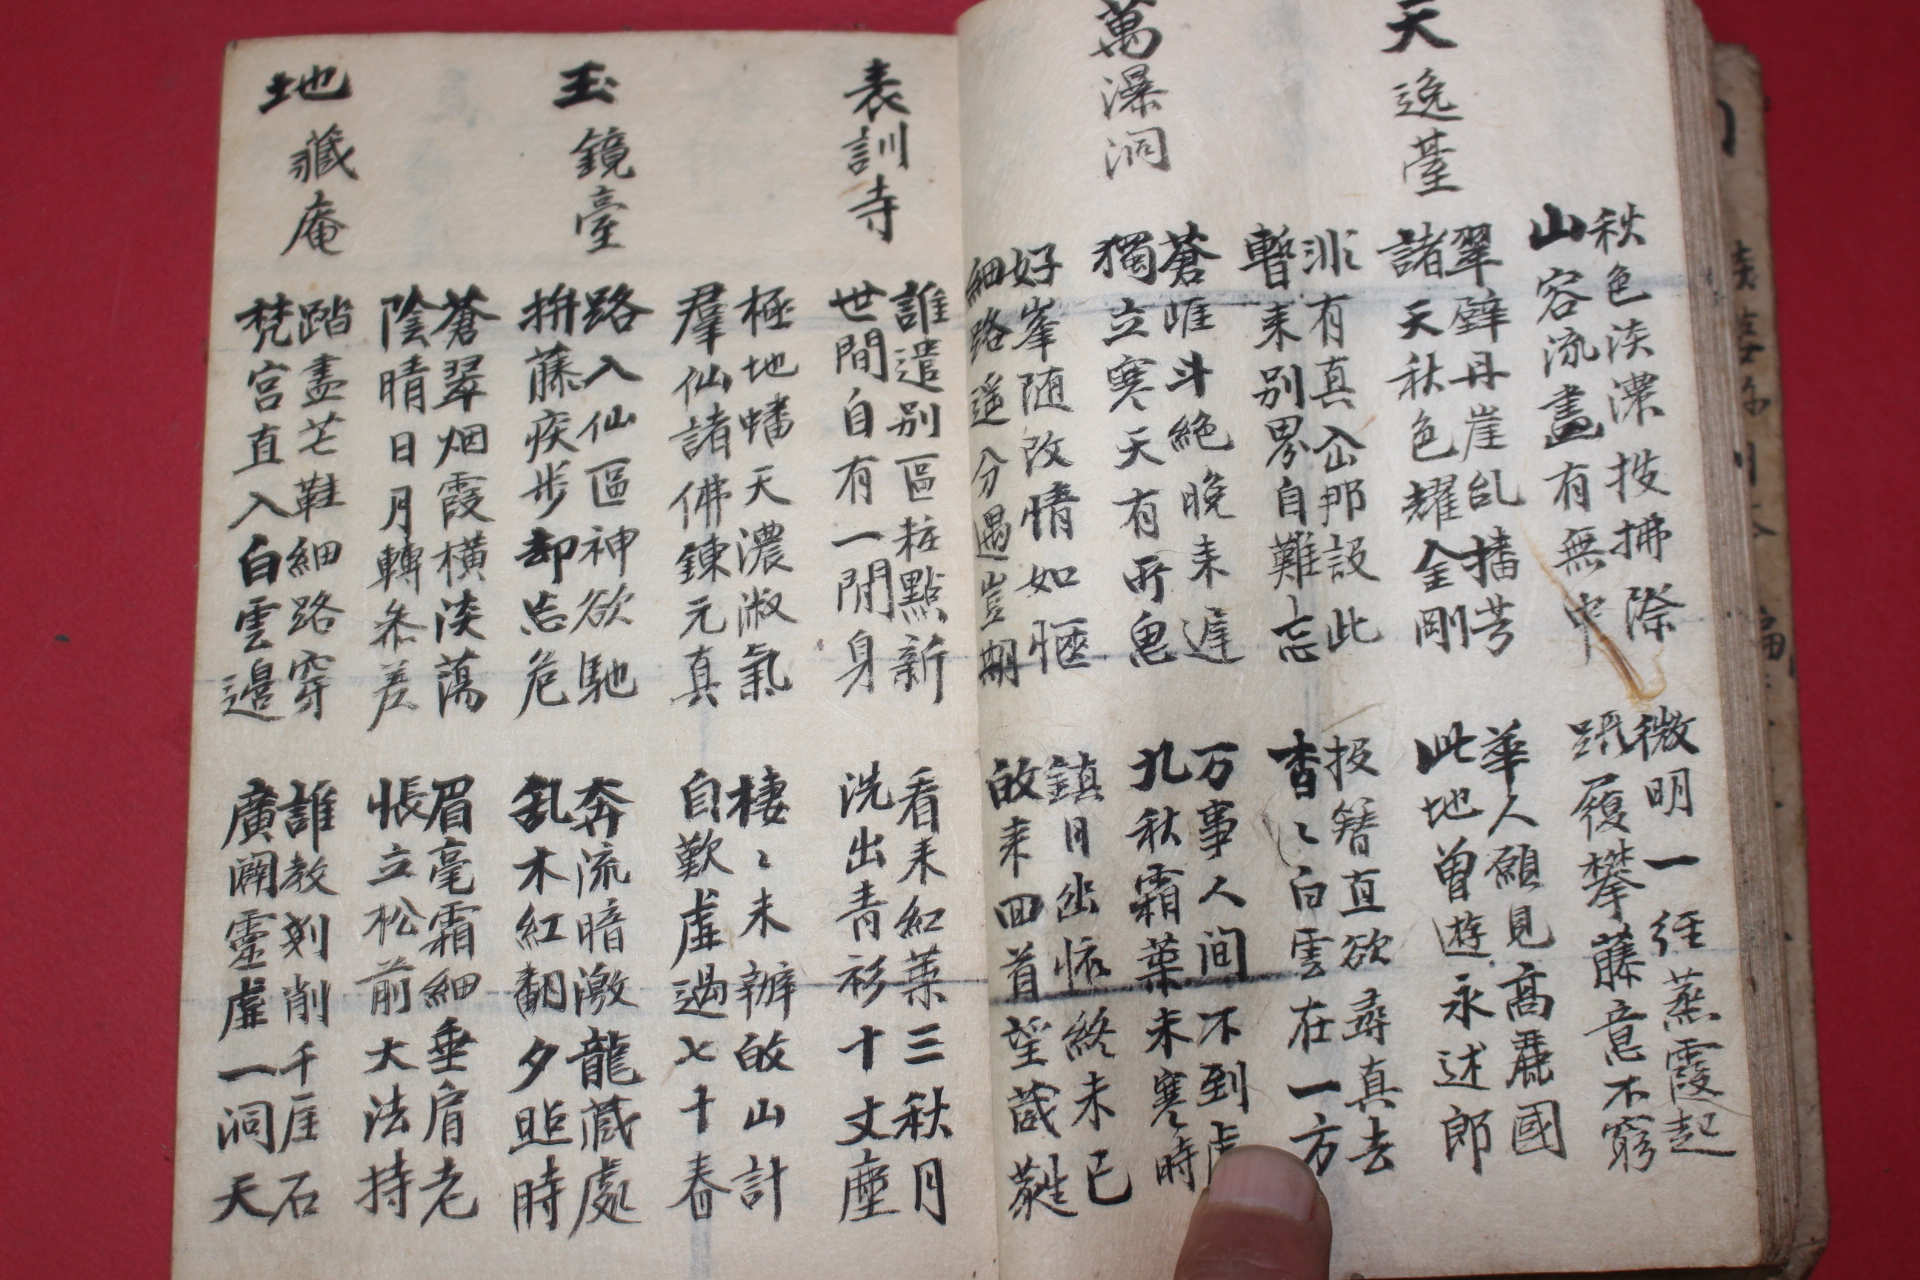 秋色淡濃投拂際
山容流盡有無中
微明一徑蒸霞起
躡履攀藤意不窮
天逸臺
翠壁丹崖乱播芳
諸天秋色耀金剛
華人願見高麗國
此地曾遊永述郎
非有真仚那設此
暫来别界自難忘
投簪直欲尋真去
杳〻白雲在一方
萬瀑洞
蒼崖斗絶晩来遅
獨立寒天有所思
万事人间不到處
九秋霜葉未寒時
好峯随改情如愜
細路遥分遇豈期
鎮日出 終未已
故来回首望葳蕤
表訓寺
誰遣别區粧點新
世間自有一閒身
看来紅葉三秋月
洗出青衫十丈塵
極地蟠天濃淑氣
羣仙諸佛鍊元真
棲〻未辦故山計
自歎虛過七十春
玉鏡臺
路入仙區神欲馳
拚藤疾步却忘危
奔流暗激龍蔵處
乱木紅翻夕照時
蒼翠烟霞横淡蕩
陰晴日月轉参差
眉毫霜細垂肩老
悵立松前大法持
地藏庵
踏盡芒鞋細路穿
梵宮直入白雲邊
誰教剗削千厓石
廣闢靈虛一洞天